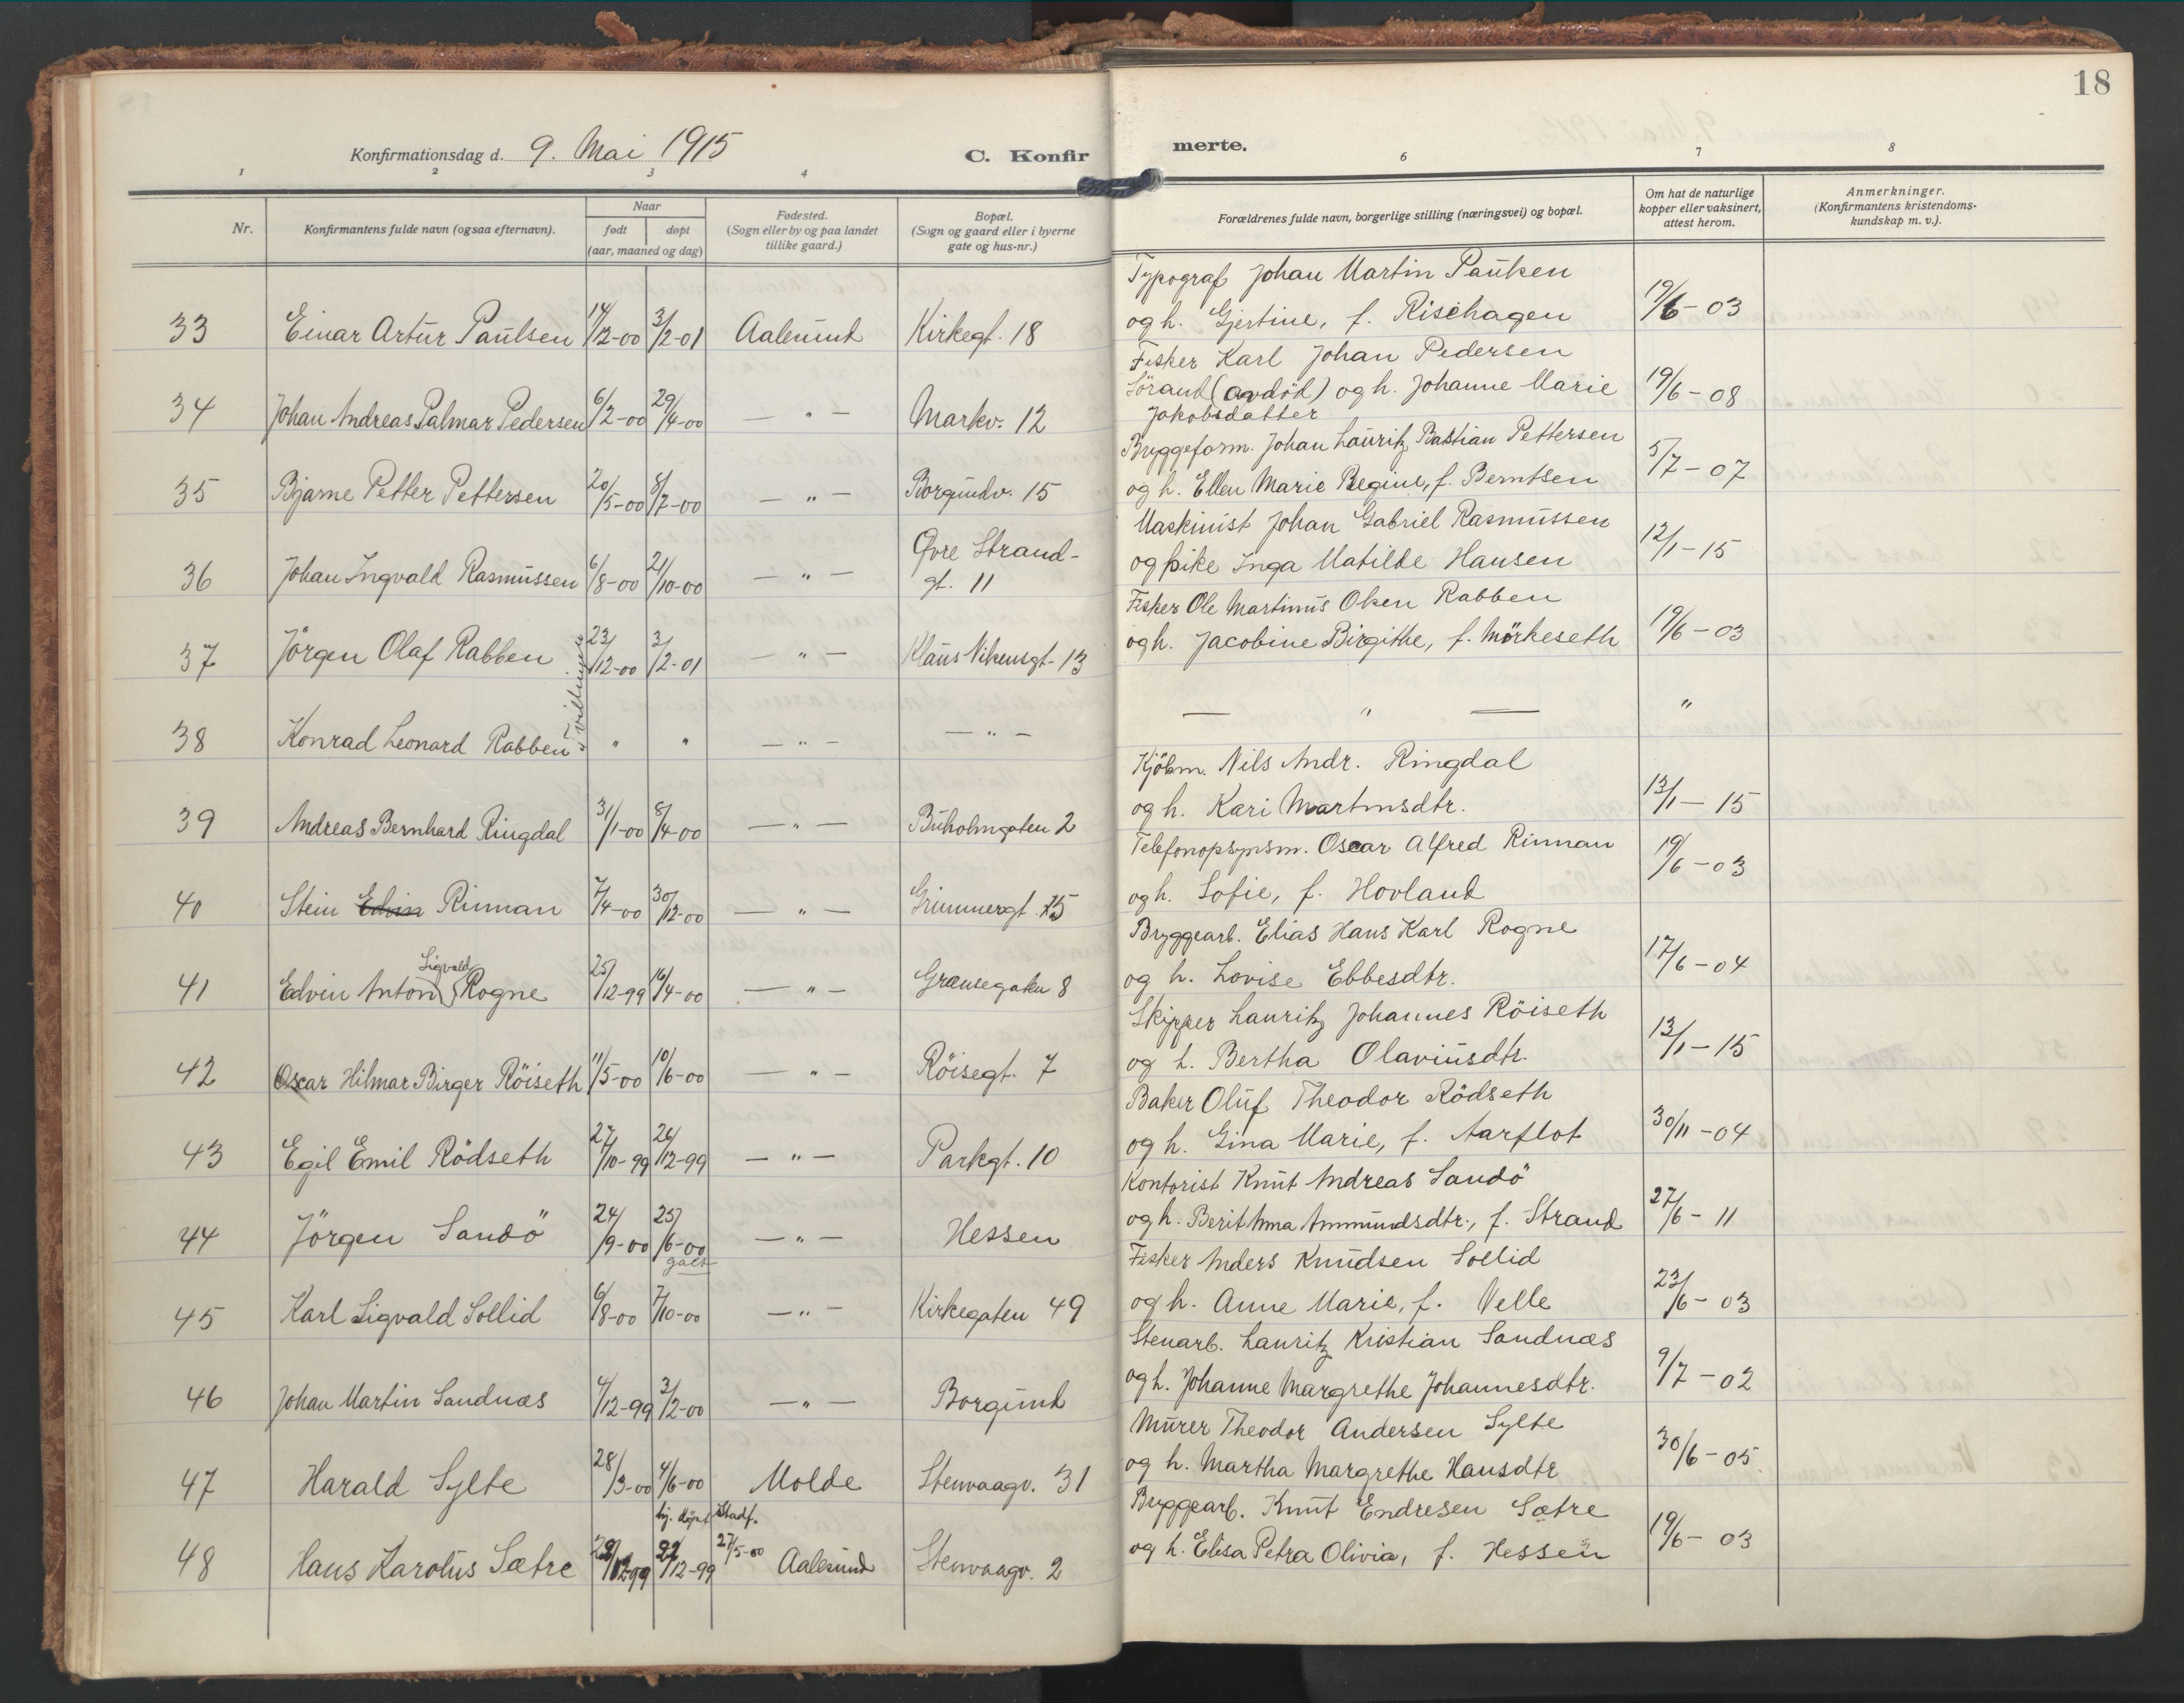 18
Konfirmationsdag d. 9. Mai 1915
C. Konfirmerte.
1 2 3 4 6 7 8
Nr.
Konfirmantens fulde navn (ogsaa efternavn).
Naar
født døpt
(aar, maaned og dag)
Fødested.
(Sogn eller by og paa landet
tillike gaard.)
Bopæl.
(Sogn og gaard eller i byerne
gate og hus-nr.)
Forældrenes fulde navn, borgerlige stilling (næringsvei) og bopæl.
Om hat de naturlige
kopper eller vaksinert,
attest herom.
Anmerkninger.
(Konfirmantens kristendoms-
kundskap m. v.).
Typograf Johan Martin Paulsen
33 Einar Artur Paulsen 14/12-00 3/2-01 Aalesund Kirkegt. 18 og h. Gjertine, f. Risehagen 19/6-03
Fisker Karl Johan Pedersen
34 Johan Andreas Palmar Pedersen 6/2-00 29/4-00 — " — Markv. 12 Sörand (avdöd) og h. Johanne Marie 19/6-08
Jakobsdatter
Bryggeform. Johan Lauritz Bastian Pettersen
35 Bjarne Petter Pettersen 20/5-00 8/7-00 — " — Borgundv. 15 og h. Ellen Marie Regine, f. Berntsen 5/7-07
Maskinist Johan Gabriel Rasmussen
36 Johan Ingvald Rasmussen 6/8-00 21/10-00 — " — Øvre Strand-
gt. 11 og pike Inga Matilde Hansen 12/1-15
Fisker Ole Martinus Olsen Rabben
37 Jörgen Olaf Rabben 23/12-00 3/2-01 — " — Klaus Nilsensgt. 13 og h. Jacobine Birgithe, f. Mörkeseth 19/6-03
tvillinger
38 Konrad Leonard Rabben " " — " — — " — — " — "
Kjöbm. Nils Andr. Ringdal
39 Andreas Bernhard Ringdal 31/1-00 8/4-00 — " — Buholmgaten 2 og h. Kari Martinsdtr. 13/1-15
Telefonopsynsm. Oscar Alfred Rinnan
40 Stein Edvin Rinnan 7/4-00 30/12-00 — " — Grimmergt. 15 og h. Sofie, f. Hovland 19/6-03
Bryggearb. Elias Hans Karl Rogne
Sigvald
41 Edvin Anton Rogne 25/12-99 16/4-00 — " — Grænsegaten 8 og h. Lovise Ebbesdtr. 17/6-04
Skipper Lauritz Johannes Röiseth
42 Oscar Hilmar Birger Röiseth 11/5-00 10/6-00 — " — Röisegt. 7 og h. Bertha Olaviusdtr. 13/1-15
Baker Oluf Theodor Rödseth
43 Egil Emil Rödseth 27/10-99 26/12-99 — " — Parkgt. 10 og h. Gina Marie, f. Aarflot 30/11-04
Kontorist Knut Andreas Sandö
44 Jörgen Sandö 24/9-00 25/6-00 — " — Hessen og h. Berit Anna Ammundsdtr., f. Strand 27/6-11
galt
Fisker Anders Knudsen Sollid
45 Karl Sigvald Sollid 6/8-00 7/10-00 — " — Kirkegaten 49 og h. Anne Marie, f. Velle 23/6-03
Stenarb. Lauritz Kristian Sandnæs
46 Johan Martin Sandnæs 4/12-99 3/2-00 — " — Borgund og h. Johanne Margrethe Johannesdtr. 9/7-02
Murer Theodor Andersen Sylte
47 Harald Sylte 28/3-00 4/6-00 Molde Stenvaagv. 31 og h. Martha Margrethe Hansdtr 30/6-05
hj. döpt Stadf. 27/5-00
Bryggearb. Knut Endresen Sætre
48 Hans Karolus Sætre /12-99 /12-99 Aalesund Stenvaagv. 2 og h. Elisa Petra Olivia, f. Hessen 19/6-03